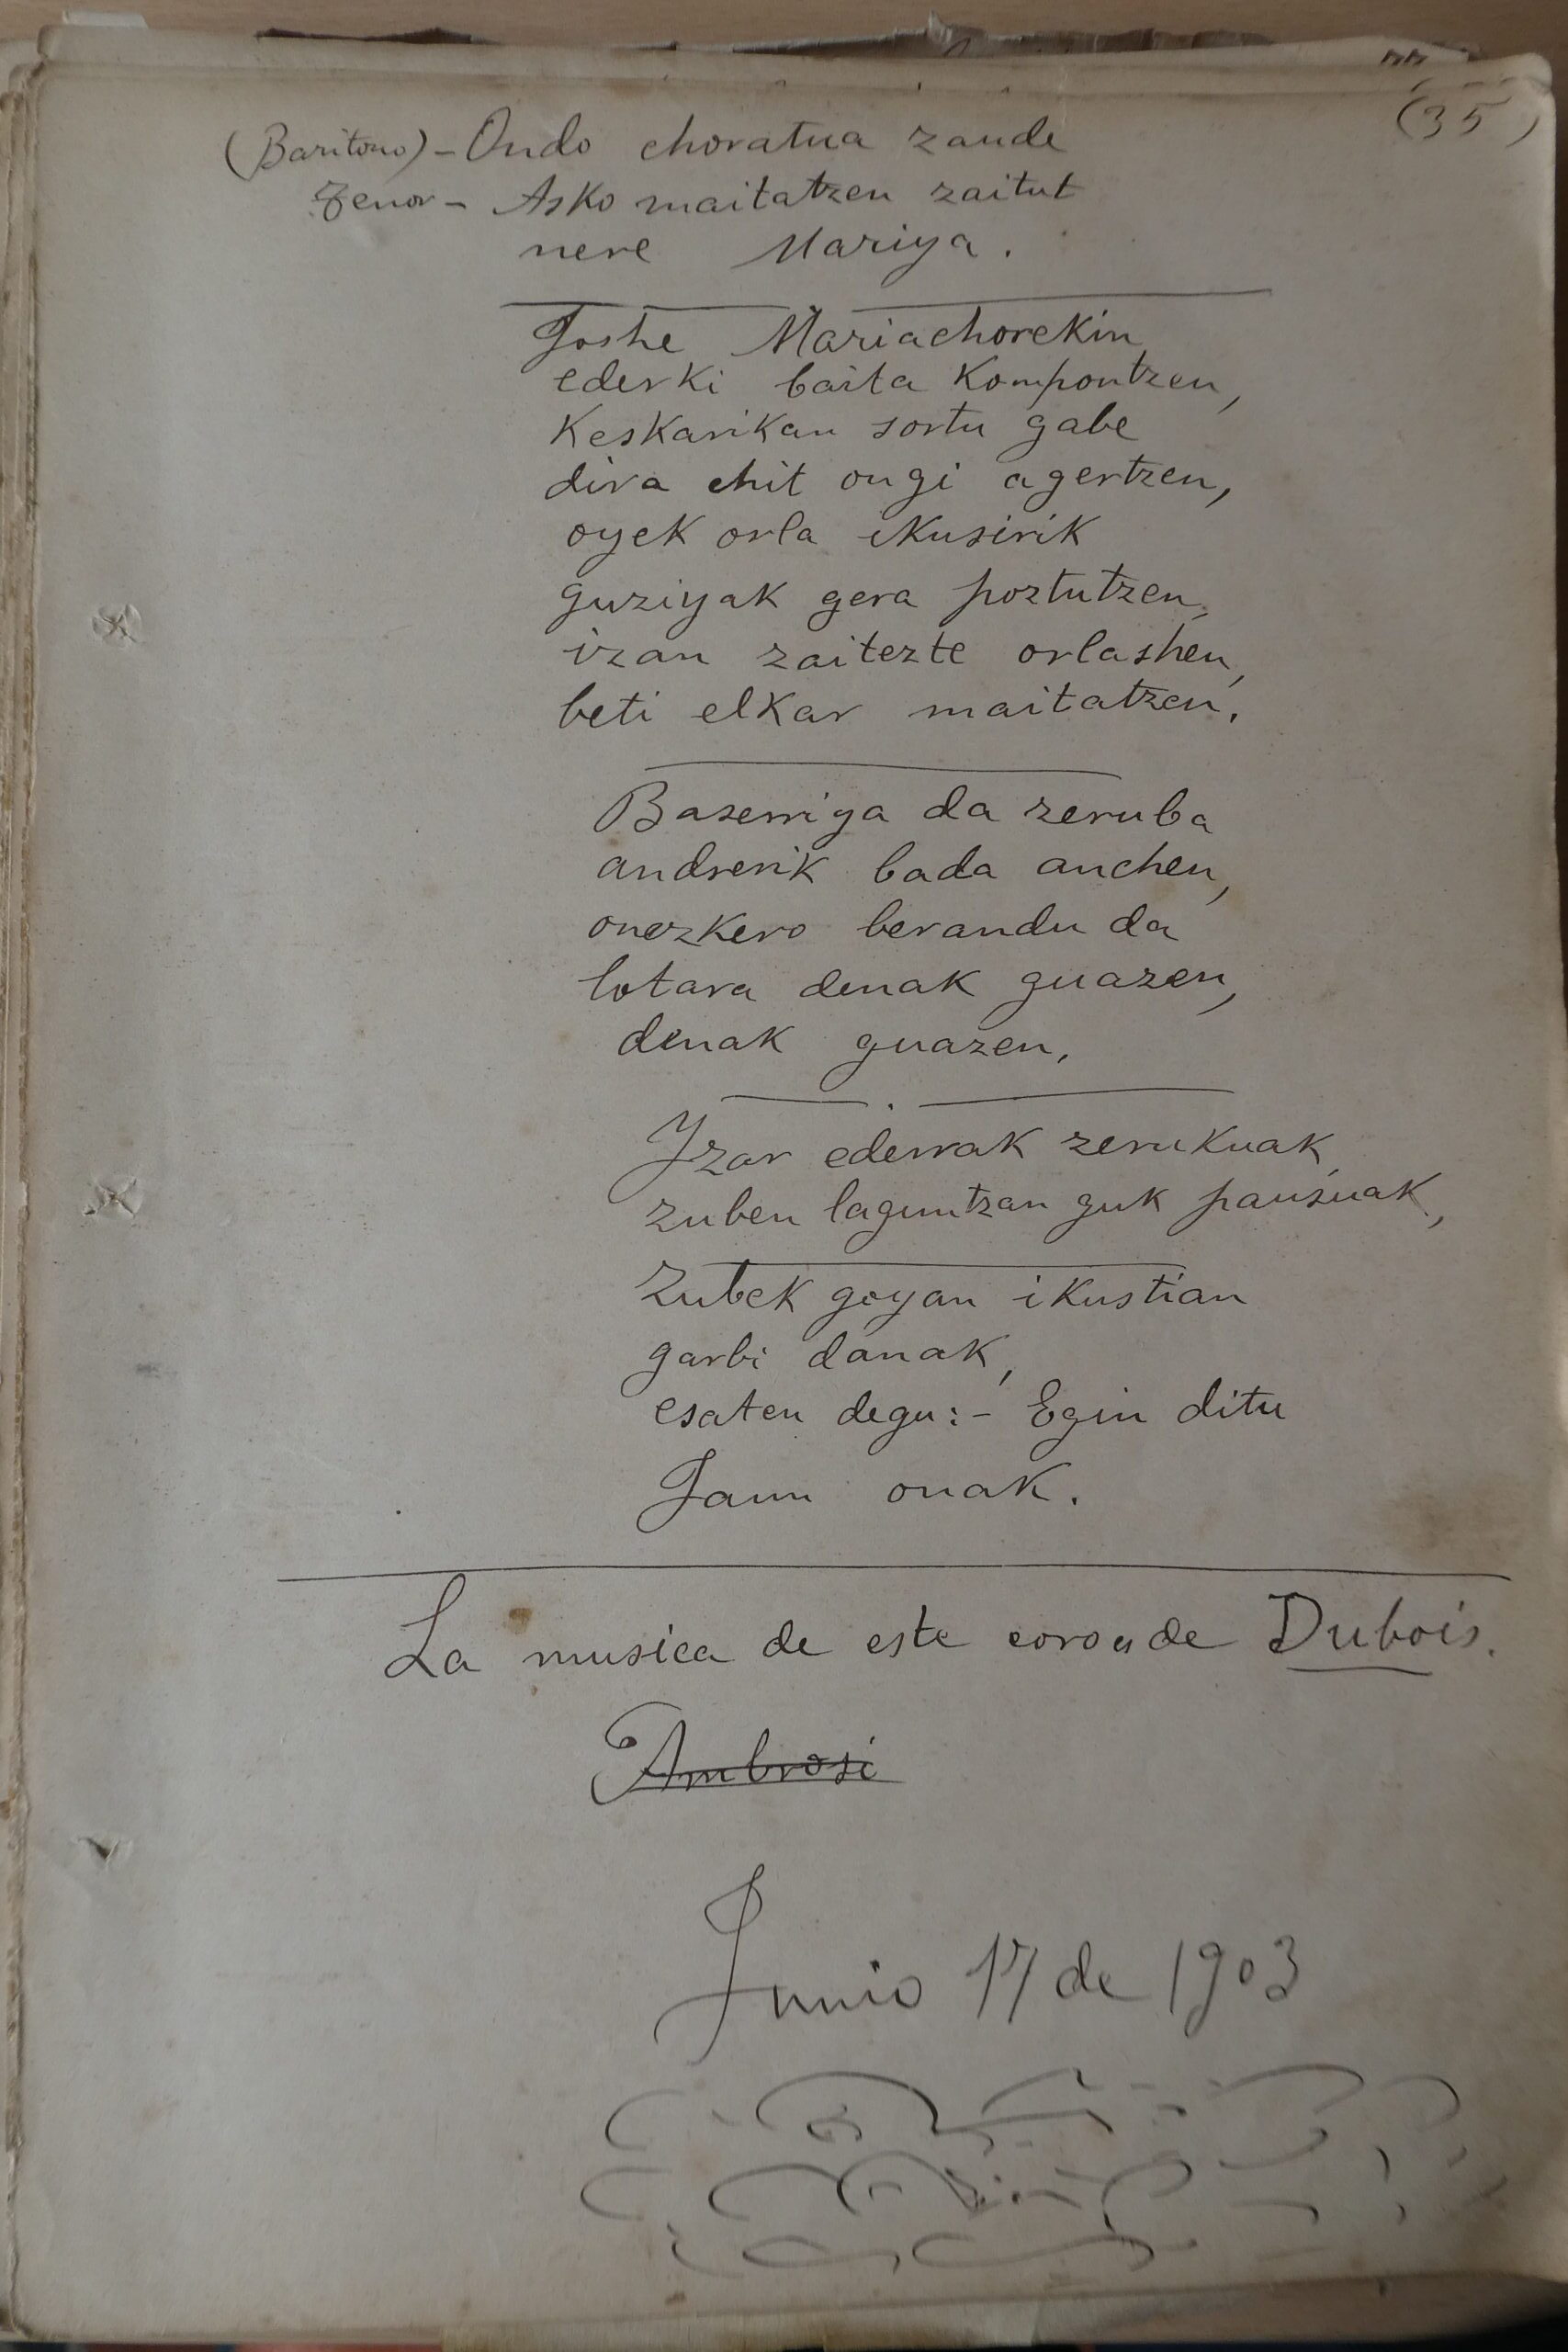 (35)
(Baritono) – Ondo choratua zaude
Tenor – Asko maitatzen zaitut
nere Mariya.
Joshe Mariachorekin
ederki baita kompontzen,
keskarikan sortu gabe
dira chit ongi agertzen,
oyek orla ikusirik
guziyak gera poztutzen,
izan zaitezte orlashen,
beti elkar maitatzen.
Baserriya da zeruba
andrerik bada anchen,
onezkero berandu da
lotara denak guazen,
denak guazen,
Izar ederrak zerukuak,
zuben laguntzan guk pausuak,
Zubek goyan ikustian
garbi danak,
esaten degu:- Egin ditu
Jaun onak.
La musica de este coro es de Dubois.
Ambrosi
Junio 17 de 1903